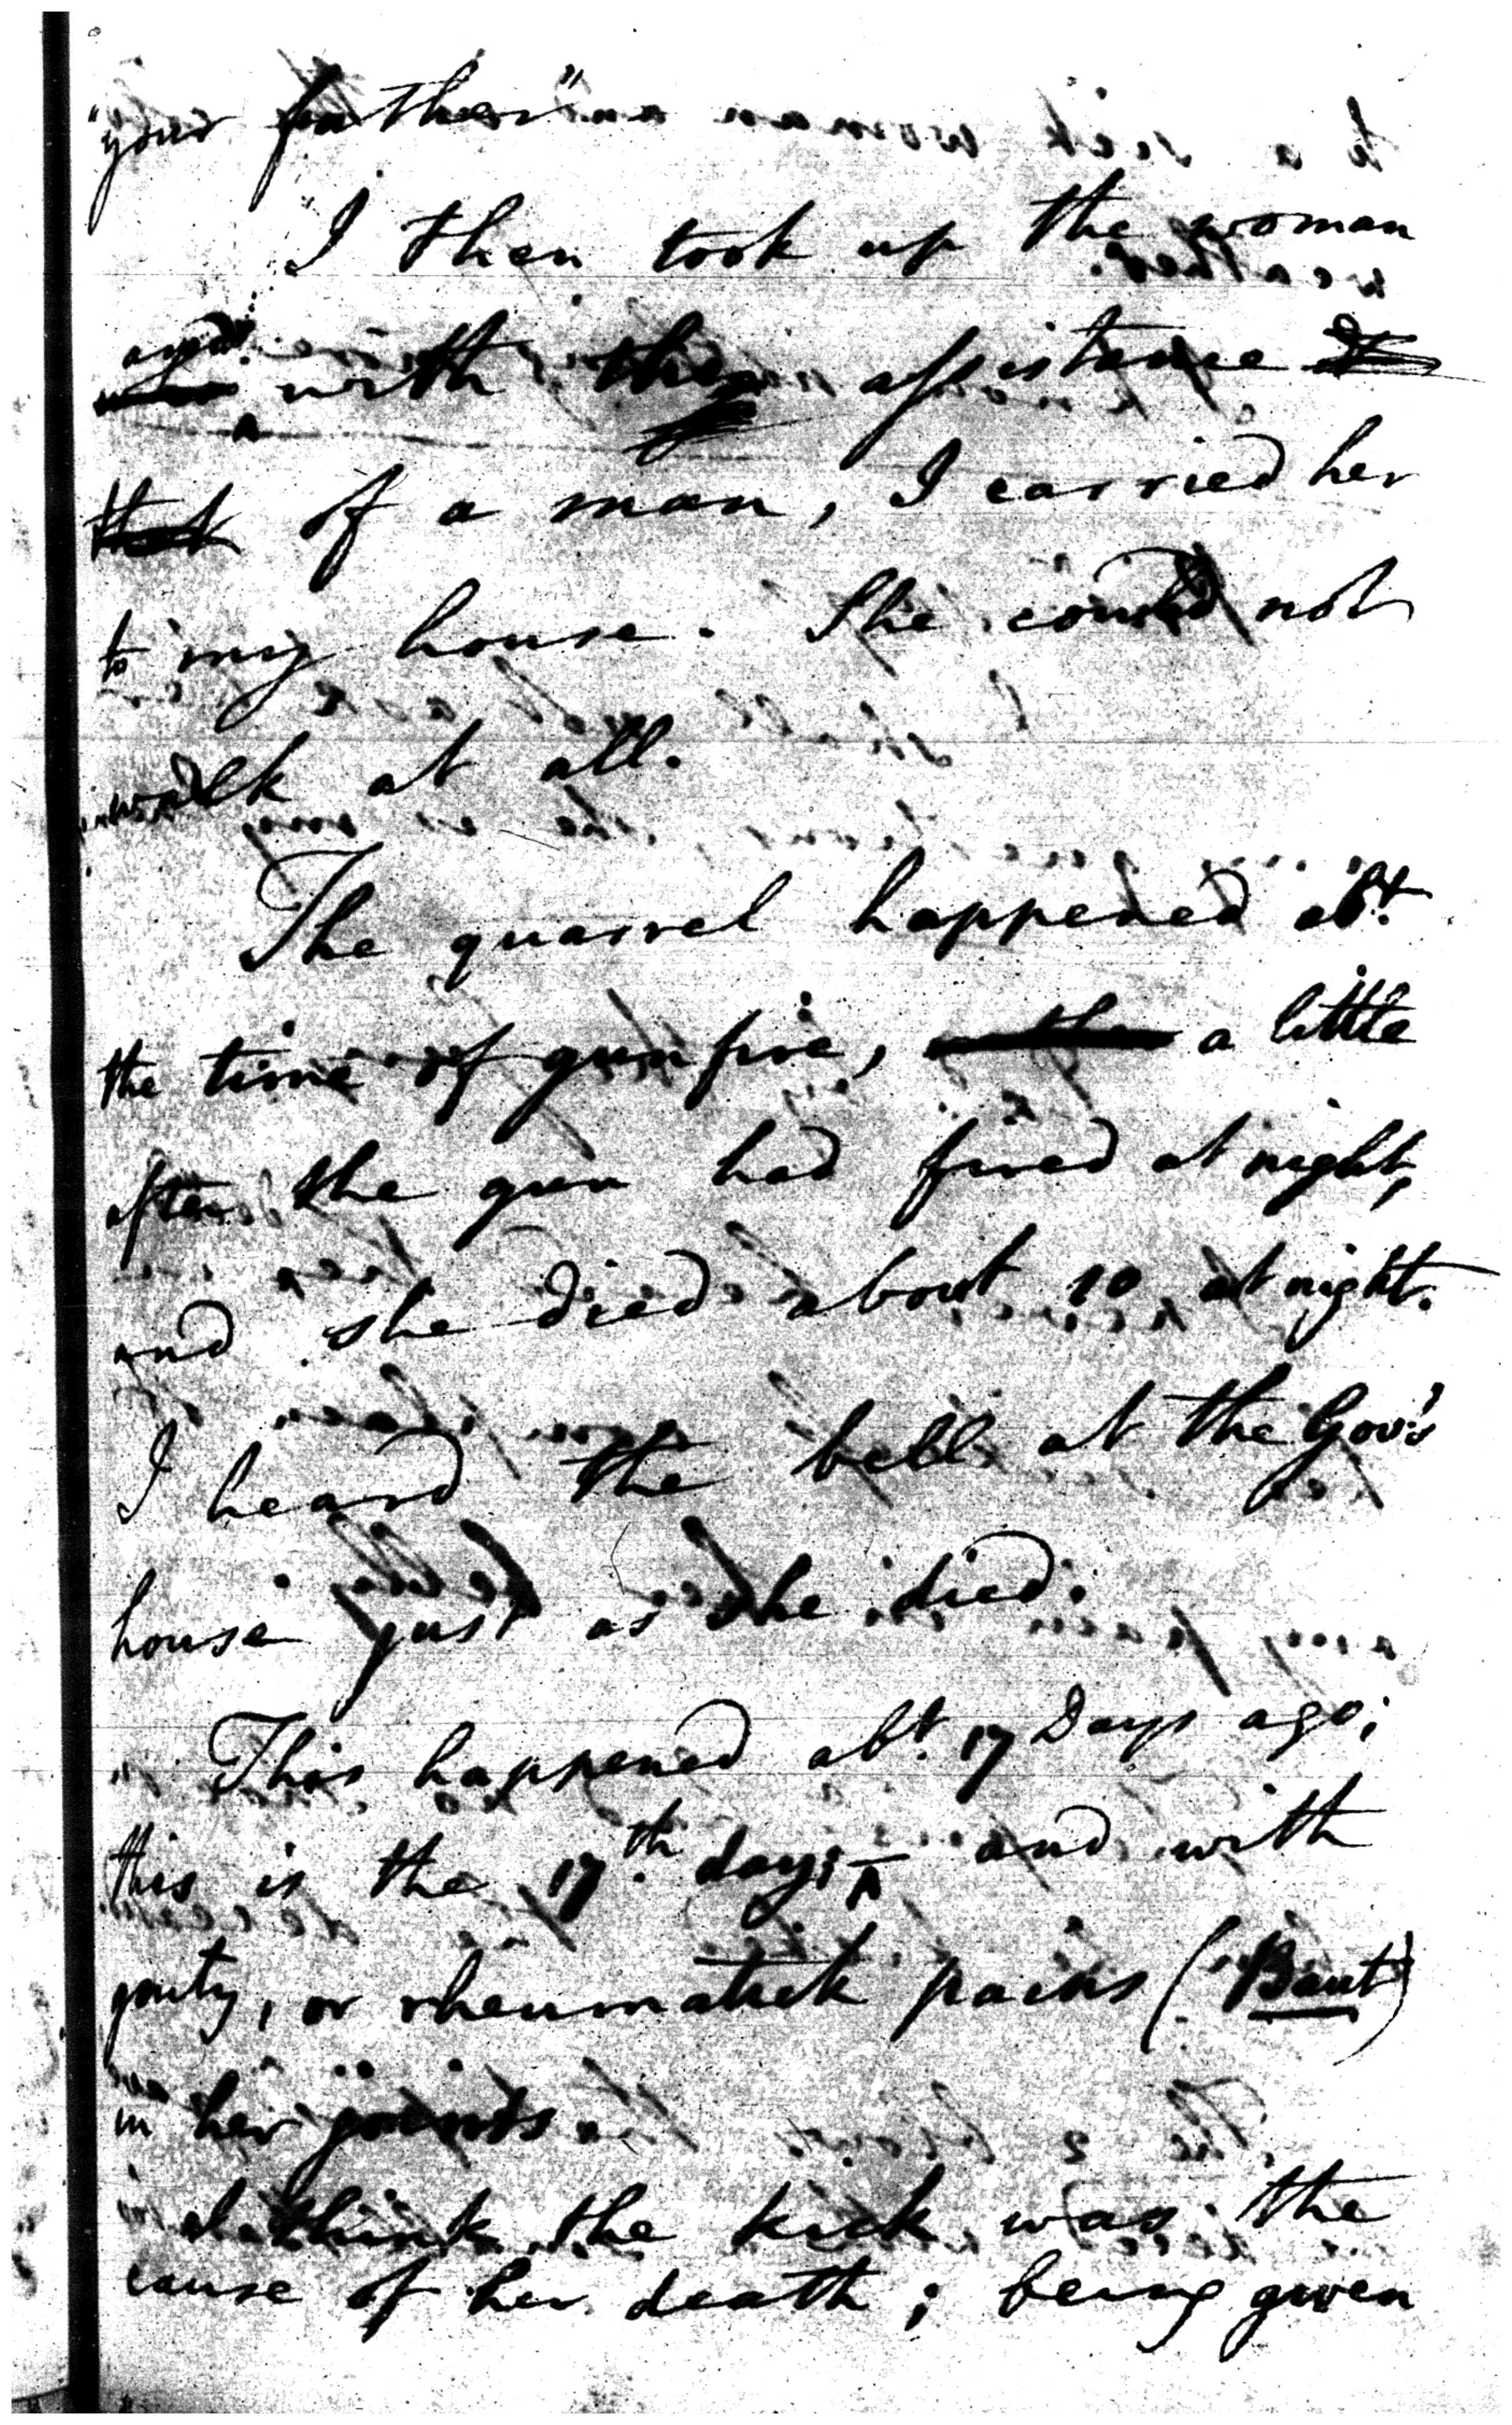 "your father"
I then took up the woman
and with the assistance
that of a man, I carried her
to my house. She could not
walk at all.
The quarrel happened abt.
the time of gunfire, a little
after the gun had fired at night,
and she died about 10 at night.
I heard the bell at the Gov's
house just as she died.
This happened abt. 17 Days ago;
this is the 17th. day; and with
gouty, or rheumatick pains (Baut)
in her joints.
I think the kick was the
cause of her death; being given